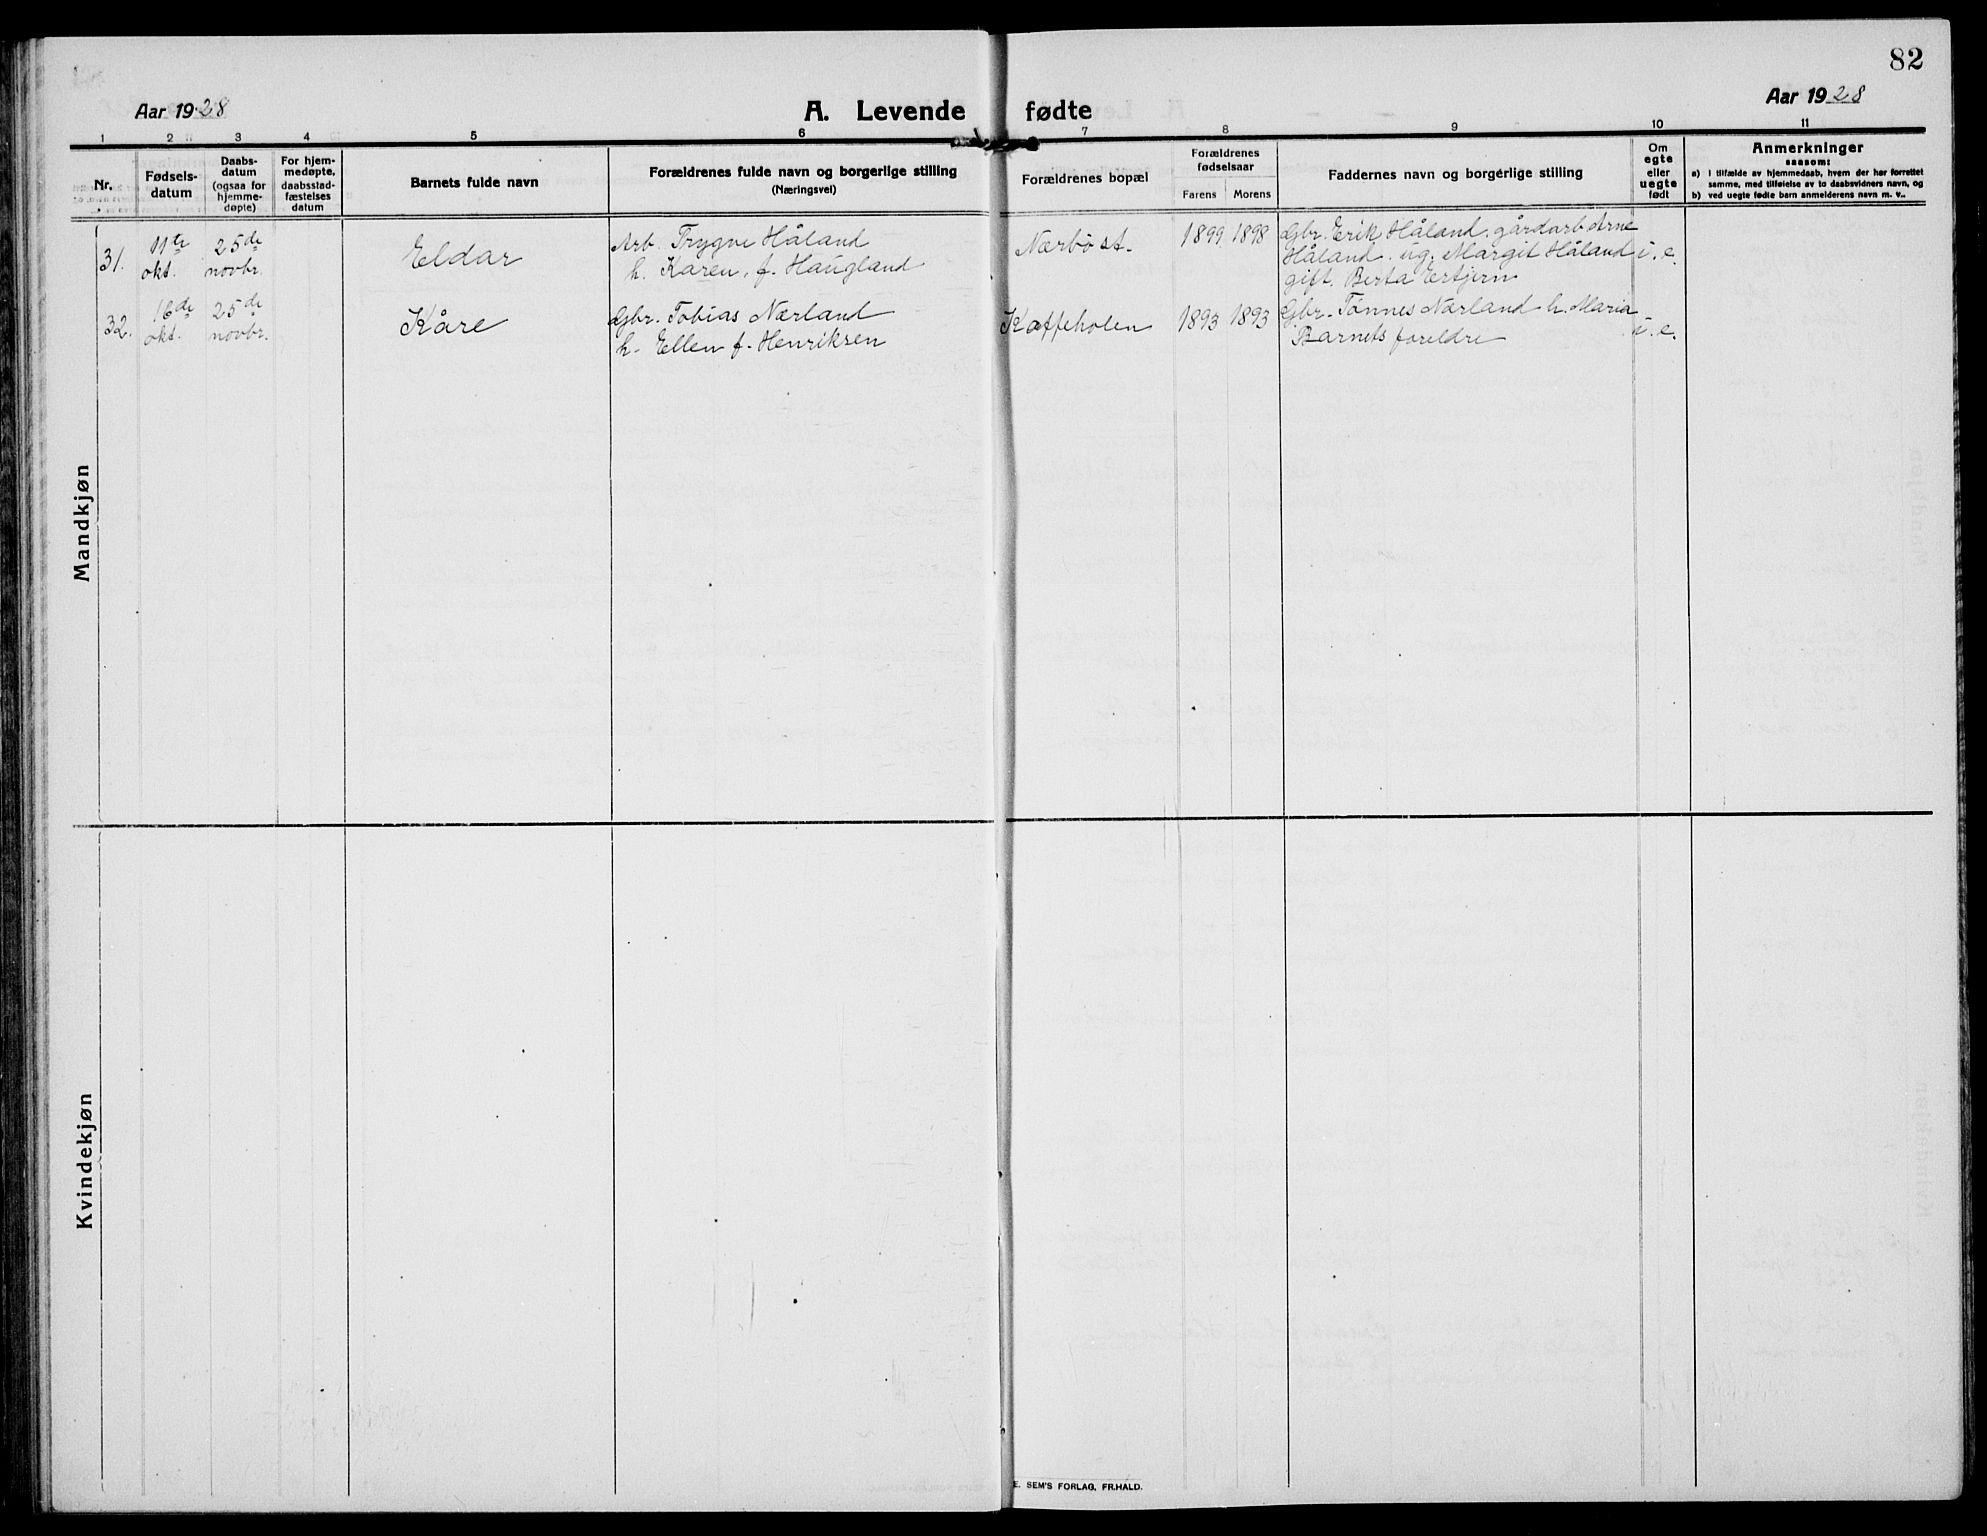 82
Aar 1928
A. Levende fødte
Aar 1928
1 2 3 4 5 6 7 8 9 10 11
Nr.
Fødsels-
datum
Daabs-
datum
(ogsaa for
hjemme-
døpte)
For hjem-
medøpte,
daabsstad-
fæstelses
datum
Barnets fulde navn
Forældrenes fulde navn og borgerlige stilling
(Næringsvei)
Forældrenes bopæl
Forældrenes
fødselsaar
Farens Morens
Faddernes navn og borgerlige stilling
Om
egte
eller
uegte
født
Anmerkninger
saasom:
a) I tilfælde av hjemmedaab, hvem der har forrettet
samme, med tilføielse av to daabsvidners navn, og
b) ved uegte fødte barn anmelderens navn m. v..
Mandkjøn
31.
11te
okt.
25de
novbr.
Eldar
Arb. Trygve Håland
h. Karen, f. Haugland
Nærbø st.
1899 1898
Gbr. Erik Håland, gårdarb Arne
Håland. ug. Margit Håland
gift. Berta
i. e.
32.
16de
okt.
25de
novbr.
Kåre
Gbr. Tobias Nærland
h. Ellen f. Henriksen
Kaffeholen
1893 1893
Gbr. Tønnes Nærland h. Maria
Barnets foreldre
i. e.
Kvindekjøn
E. SEM'S FORLAG, FR.HALD.